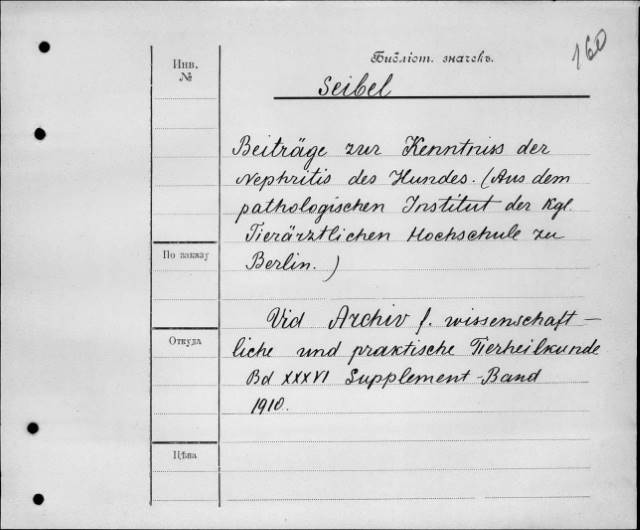 160
Библіот. значекъ.
Инв.
№
Seibel
Beiträge zur Kenntniss der
Nephritis des Hundes. (Aus dem
pathologischen Institut der Kgl.
Tierärztlichen Hochschule zu
По заказу
Berlin.)
Vid Archiv f. wissenschaft-
Откуда
liche und praktische Tierheilkunde
Bd XXXVI Supplement-Band
1910.
Цѣна